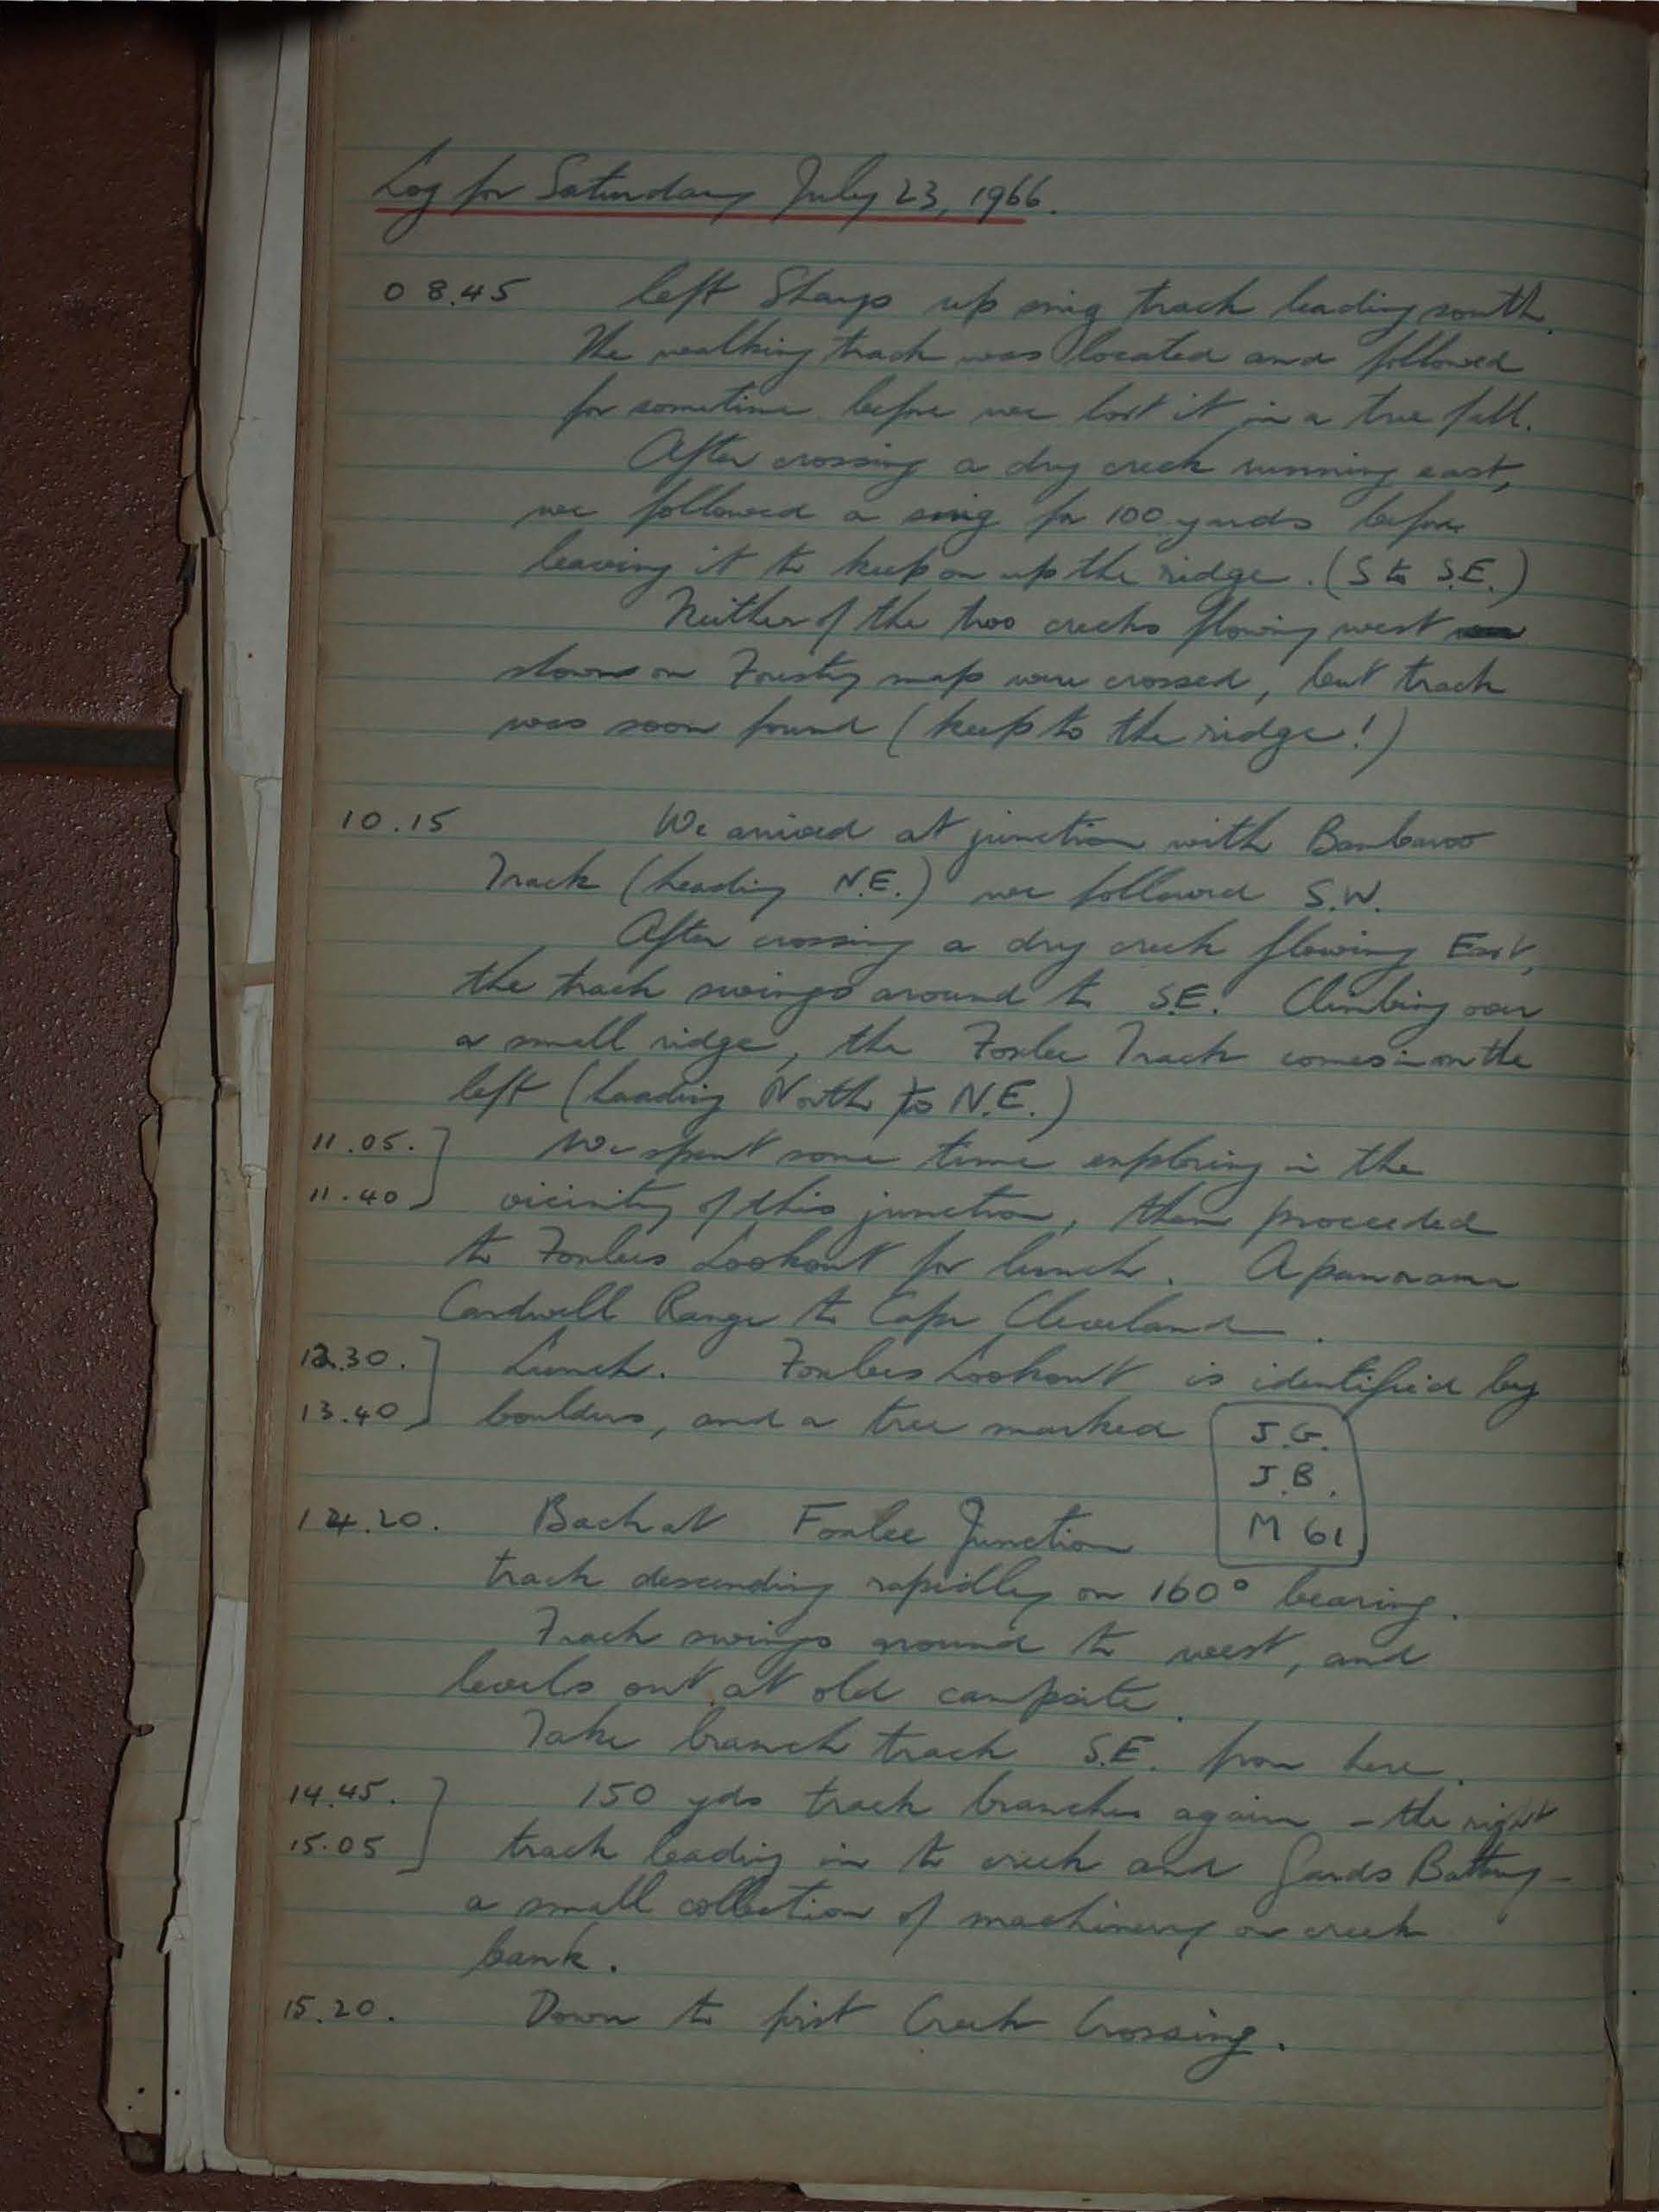 Log for Saturday July 23, 1966.
08.45 left Sharps up snig track leading south.
The walking track was located and followed
for sometime before we lost it in a tree fall.
After crossing a dry creek running east,
we followed a snig for 100 yards before
leaving it to keep on up the ridge. (S to S.E.)
Neither of the two creeks flowing west
shown on Forestry map were crossed, but track
was soon found (keep to the ridge!)
10.15 We arrived at junction with Bambaroo
Track (heading N.E.) we followed S.W.
After crossing a dry creek flowing East,
the track swings around to S.E. Climbing over
a small ridge, the Foxlee Track comes in on the
left (heading North to N.E.)
11.05. We spent some time exploring in the
11.40 vicinity of this junction, then proceeded
to Foxlees Lookout for lunch. A panorama
Cardwell Range to Cape Cleveland.
12.30. Lunch. Foxlees Lookout is identified by
13.40 boulders, and a tree marked J.G.
J.B.
M 61
14.20. Back at Foxlee Junction
track descending rapidly on 160° bearing.
Track swings around to west, and
levels out at old campsite.
Take branch track S.E. from here.
14.45. 150 yds track branches again - the right
15.05 track leading in to creek and Battery -
a small collection of machinery on creek
bank.
15.20. Down to first Creek Crossing.